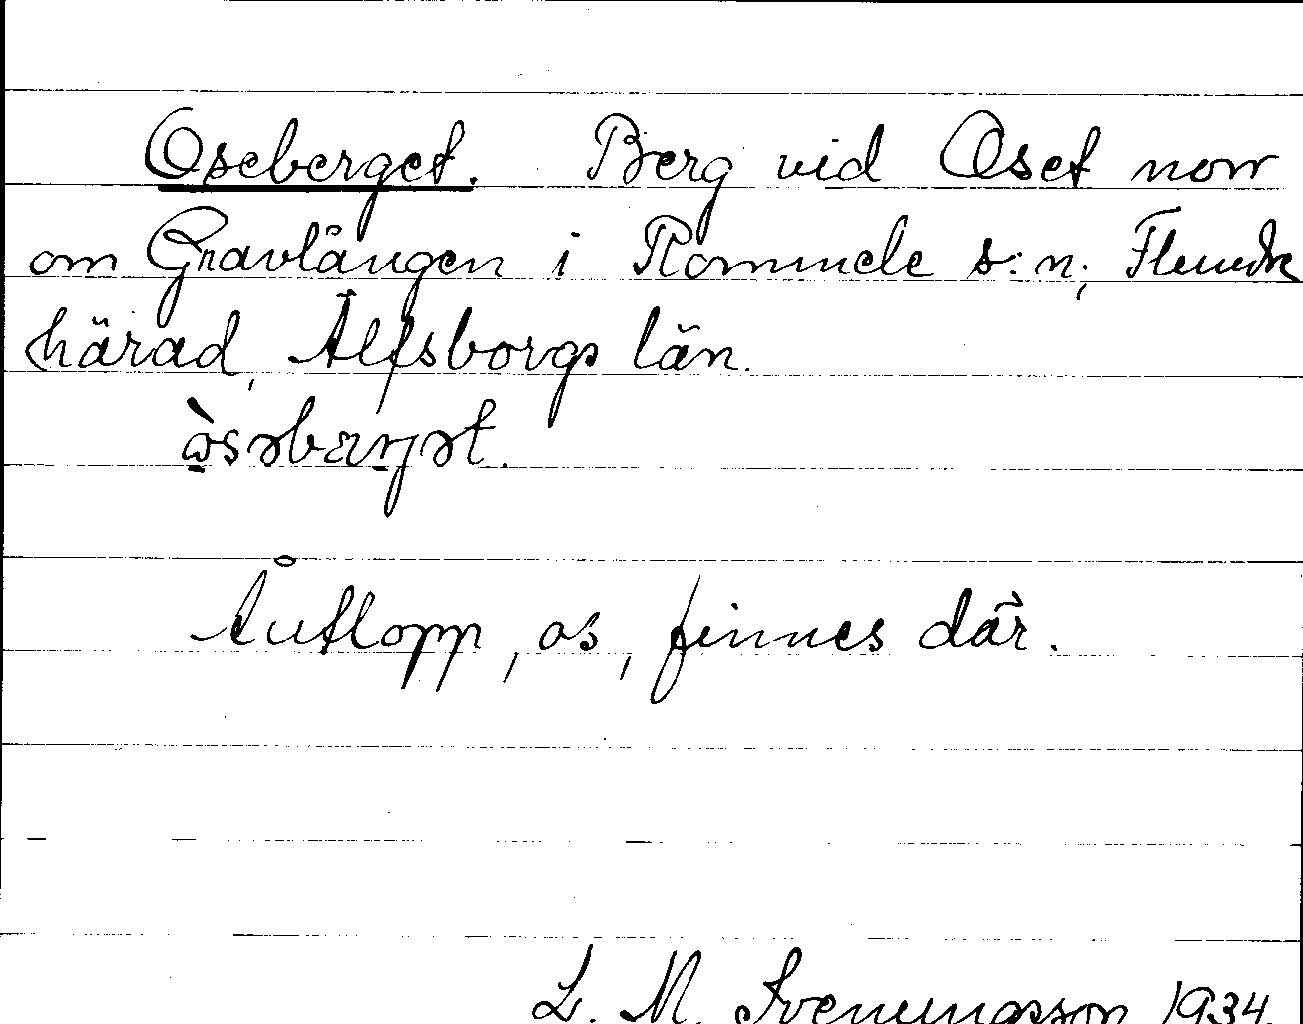 Oseberget. Berg vid Oset norr
om Gravlången i Rommele s:n; Flundre
härad, Älfsborgs län.
ò̱səbæṟjət.
Åutlopp, os, finnes där.
L. M. Svenungsson 1934.